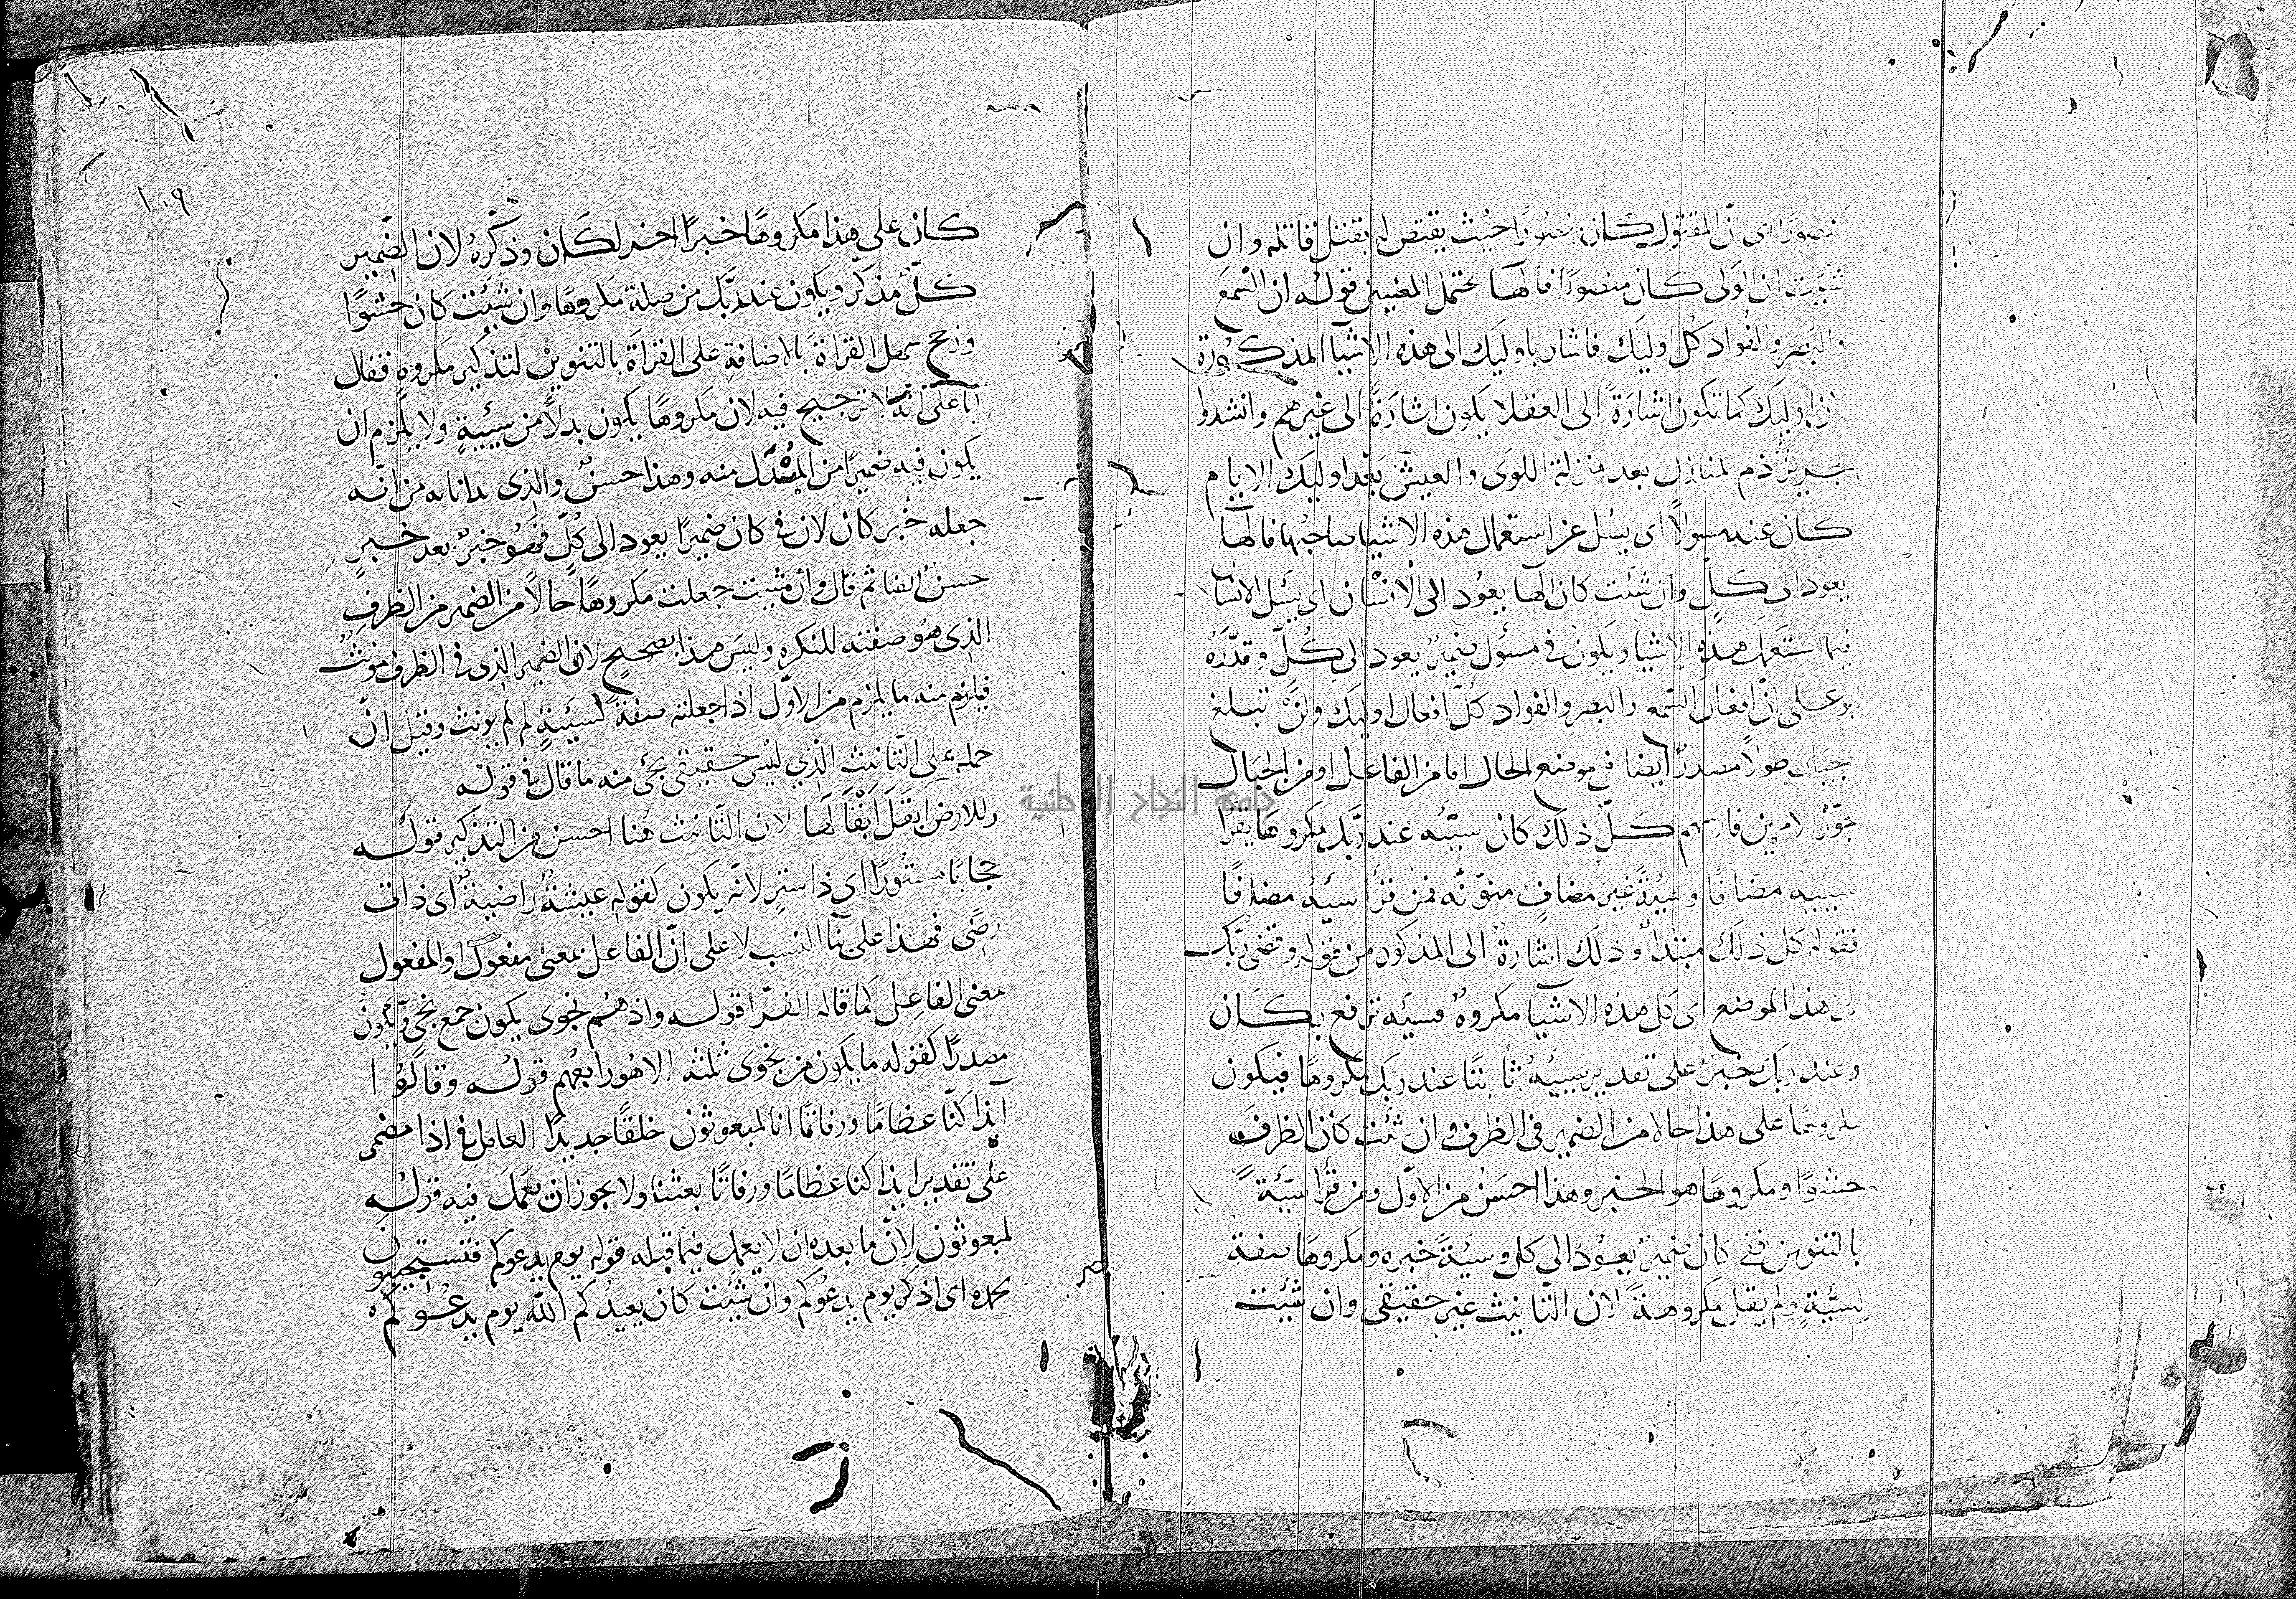 منصورًا اى انّ المقتول كان منصورًا حيث يقتص له بقتل قاتله وان
شيت ان الولى كان منصورًا فالهآ تحتمل المعنيين قوله ان السّمعَ
والبَصَر والفُوادَ كل اوليَك فاشار باوليَك الى هذه الاشيآ المذكورة
لان اوليَك كما تكون اشارَةً الى العقلا يكون اشارَةً الى غيرهم وانشدوا
لجرير ذم المنازل بعد منزلة اللوَى والعيشَ بَعْد اوليَك الايام
كان عنه مسولًا اى يسئل عن استعمال هذه الاشيا صاحبُها فالهآ
يعود الى كلٍّ وان شئت كان الهآ يعوُد الى الْانسْان اى يسئل الانسَان
فيما استَعمل هذهِ الاشيا ويَكون فى مسؤل ضميرٌ يعود الى كُلّ وقدَّرَهُ
ابو على انّ افعال السّمع والبصر والفواد كلّ افعال اوليَك ولنْ تبلغ
الجبَال طولًا مصدرٌ ايضا فى موضع الحال اما من الفاعل او من الجبَال
جوّز الامرين فارسهم كلّ ذلك كان سيّئه عند ربّك مكروهًا يقرا
سيّيه مضَافًا وسيّئةً غيرَ مضافٍ منوّنه فمن قرأ سيّئهُ مضافًا
فقوله كل ذلك مبتدأ وذلك اشارةٌ الى المذكور من قوله وقضى ربّك
الى هذا الموضع اى كل هذه الاشيآ مكروهٌ فسيّئه ترتفع بكَان
وعند ربكَ خبرٌ على تقدير سيّيهُ ثابتًا عند ربك مكروهًا فيكون
مكروهًا على هذا حالا من الضمير فى الظرف وان شئت كان الظرفَ
حشوًا ومكروهًا هو الخبر وهذا احسَنُ من الاوّل ومن قرأ سيّئةً
بالتنوين ففى كان ضميرٌ يعوُد الى كل وسيئةً خبره ومكروهًا صفة
لِسيّئةٍ ولم يقل مكروهةً لان التّانيث غير حقيقى وان شئت
١٠٩
كان على هذا مكروهًا خبرًا اخر لكَان وذكّرهُ لان الضّمير
كلّ مذكّر ويكون عند ربّك من صلة مكروهًا وان شيئت كان حشوًا
ورجح بعض القراةَ بالاضافةِ على القراةَ بالتنوين لتذكير مكروهٍ فقال
ابا على انّهَ لا ترجيح فيه لان مكروهًا يكون بدلًا من سيّيةٍ ولا يلزم ان
يكون فيه ضميرًا من المُبْدَل منه وهذا حسنٌ والذى بدانا به من انّه
جعله خبر كان لان فى كان ضميرًا يعود الى كُلّ فهُو خبرٌ بعد خبرٍ
حسنٌ ايضا ثم قال وان شيت جعلت مكروهًا حالًا من الضمير من الظرفِ
الذى هُو صفته للنكره وليسَ هذا بصحيحٍ لان الضمير الذى فى الظرف مونثٌ
فيلزم منه ما يلزم من الاوّل اذا جعلته صفةً لسيئةٍ لم لم يونث وقيل انّ
حمله على التّانيث الذي ليْس حقيقى يجَئ منه ما قال فى قوله
وللارضَ اَبقَلَ اَبْقَالَها لان التّانيث هُنا احسن من التذكير قوله
حجابًا مستُورًا اى ذا سترٍ لانّه يكون كقوله عيشةٌ راضيةٌ اى ذات
رضًى فهذا على بنآ النسب لا على انّ الفاعل بمعنى مفعول او المفعول
بمعنى الفاعِل كما قاله الفرّا قوله واذ هُم نجوى يكون جمع نجىّ ويكونُ
مصدرًا كقوله ما يكون من نجوى ثلثه الا هُو رابعُهم قوله وقالُوا
آيذا كنّا عظامًا ورفاتًا انا لمبعوثون خلقًا جديدًا العامل فى اذا مضمر
على تقدير ايذا كنا عظامًا ورفاتًا بعثنا ولا يجوز ان يَعْمَلَ فيه قوله
لمبعوثون لانّ ما بعد ان لا يعمل فيما قبله قوله يوم يدعوكم فتستجيبون
بحمده اى اذكر يوم يدعُوكم وان شيئت كان يعيدُكم اللّٰه يوم يدعُوكم ه
جامعة النجاح الوطنية